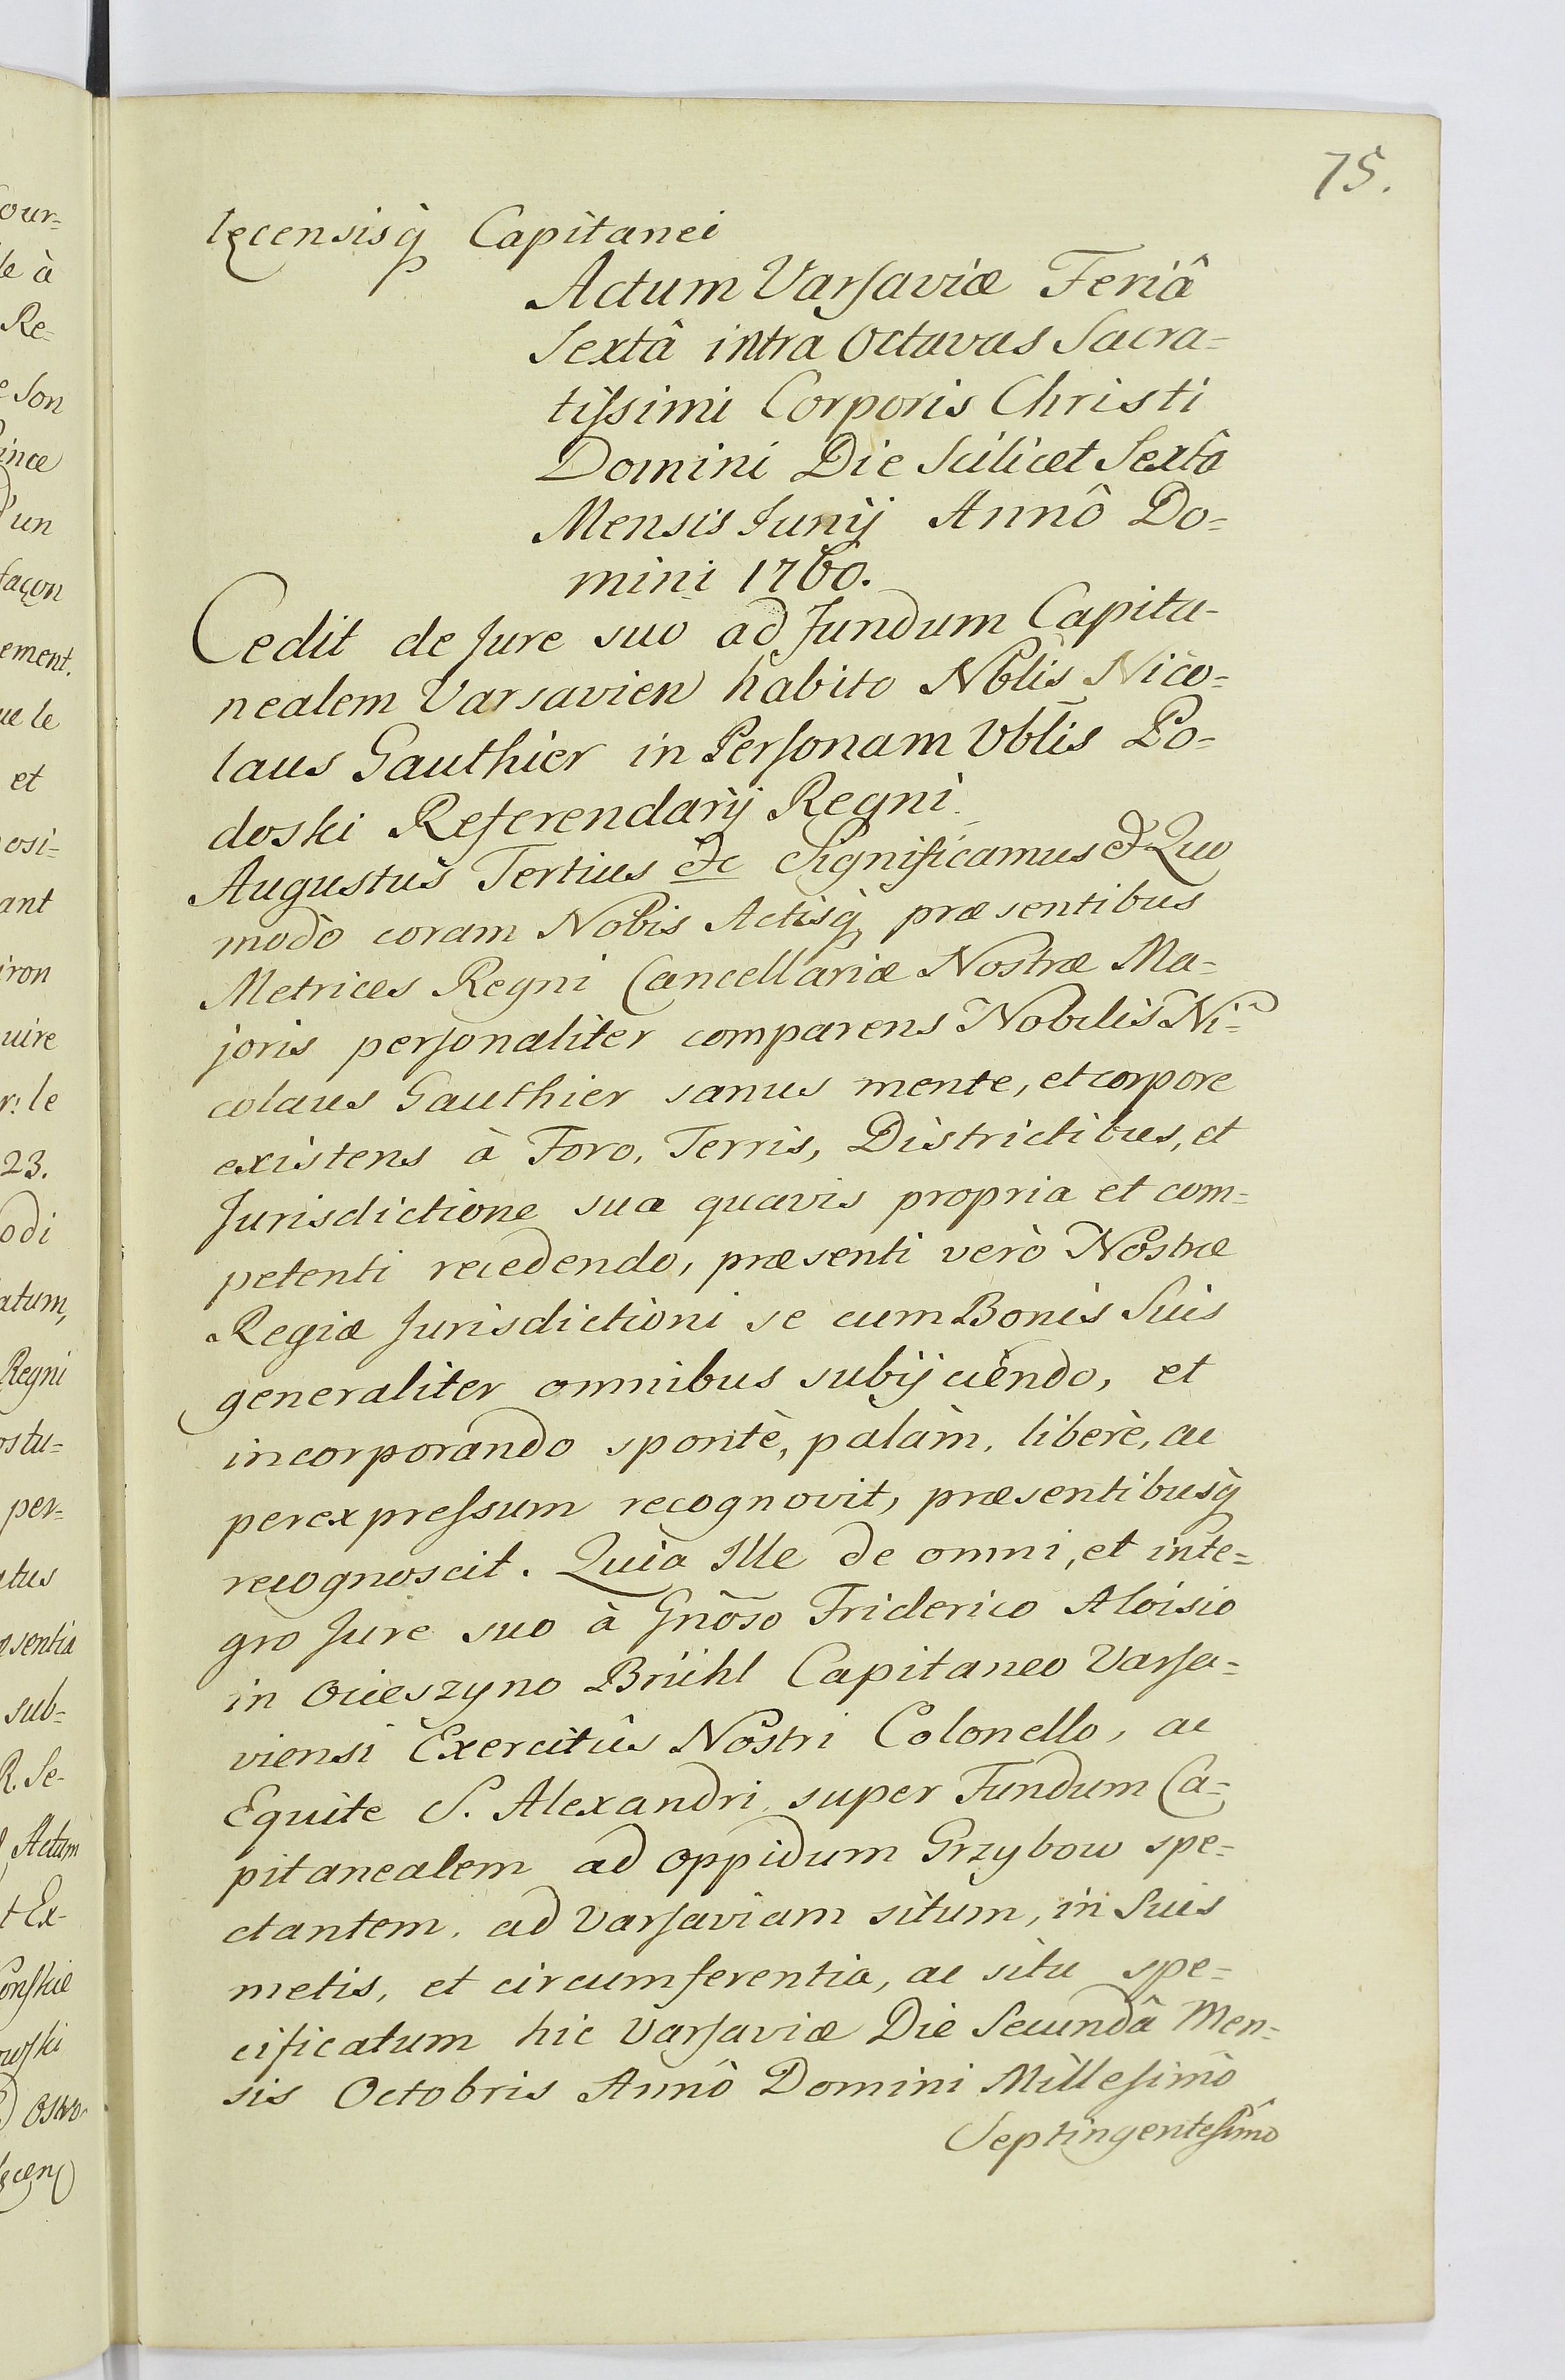 75.
lęcensisq́ Capitanei
Actum Varsaviæ Feriâ
Sextâ intra Octavas Sacra=
tissimi Corporis Christi
Domini Die Scilicet Sextâ
Mensis Junij Annô Do=
mini 1760.
Cedit de Jure suo ad Fundum Capita-
nealem Varsavien habito Nblis Nico=
laus Gauthier in Personam Vblis Po=
doski Referendarij Regni.
Augustus Tertius etc Significamus et Quo
modò coram Nobis Actisq́ præsentibus
Metrices Regni Cancellariæ Nostræ Ma=
joris personaliter comparens Nobilis Ni=
colaus Gauthier sanus mente, et corpore
existens à Foro, Terris, Districtibus, et
Jurisdictione sua quavis propria et com=
petenti recedendo, præsenti verò Nostræ
Regiæ Jurisdictioni se cum Bonis Suis
generaliter omnibus subijciendo, et
incorporando spontè, palàm, liberè, ac
per expressum recognovit, præsentibusq́
recognoscit. Quia Ille de omni, et inte=
gro Jure suo à Gnõso Friderico Aloisio
in Ocieszyno Brühl Capitaneo Varsa=
viensi Exercitûs Nostri Colonello, ac
Equite S. Alexandri super Fundum Ca=
pitanealem ad oppidum Grzybow spe=
ctantem, ad Varsaviam situm, in Suis
metis, et circumferentia, ac situ spe=
cificatum hic Varsaviæ Die Secundâ Men=
sis Octobris Annô Domini Millesimô
Septingentesimô
our=
le à
Re=
e Son
ince
d'un
façon
ement.
ue le
et
osi=
ant
iron
uire
r: le
23.
odi
atum,
Regni
ostu=
per=
atus
sentia
sub=
R. Se-
Actum
t Ex-
onskie
owski
Ostro-
lęcen